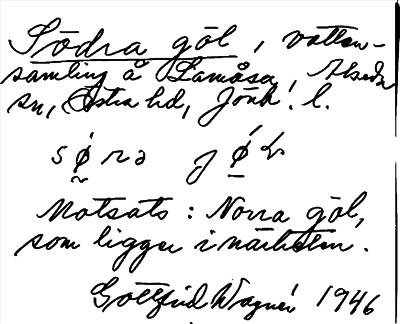 Södra göl, vatten-
samling å Lamåsa, Alseda
sn, Östra hd, Jönk. l.
Motsats: Norra göl,
som ligger i närheten.
Gottfrid Wagnér 1946